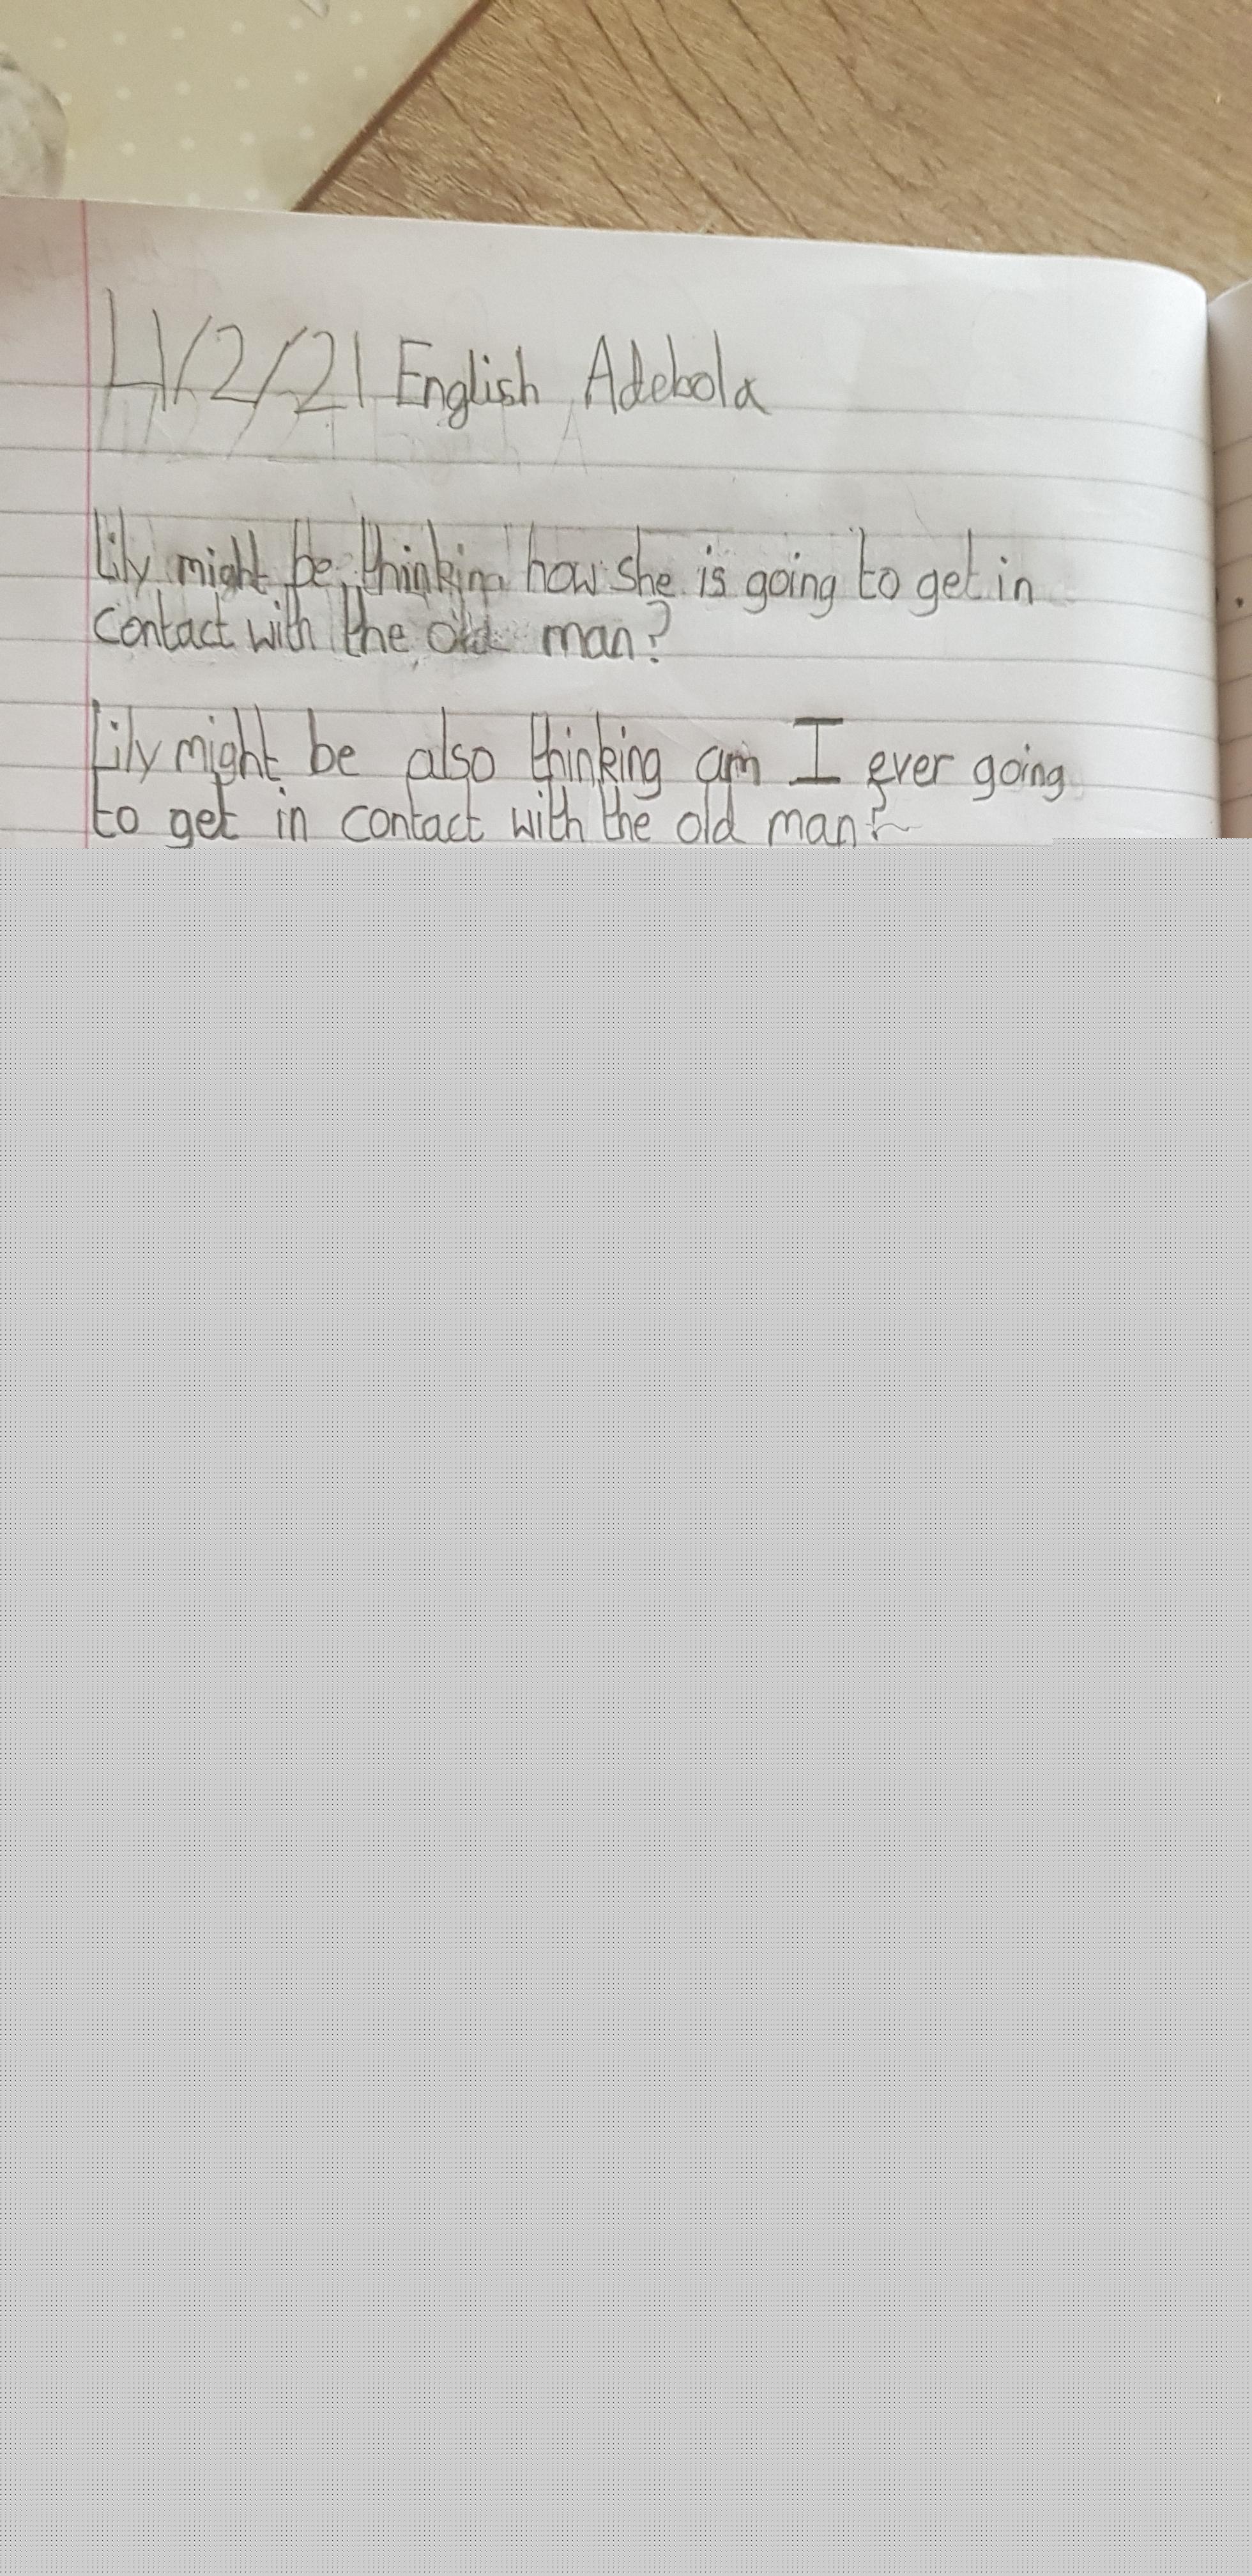 4/2/21 English Adebola
Lily might be thinking how she is going to get in
contact with the old man?
Lily might be also thinking am I ever going
to get in contact with the old man?